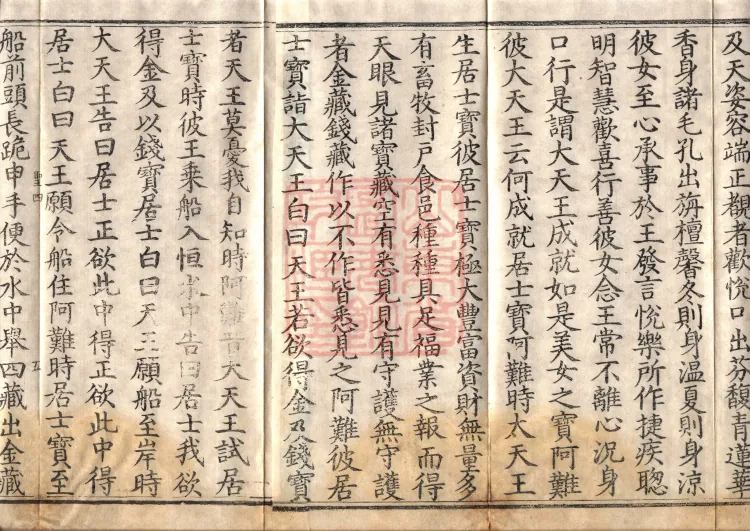 及天姿容端正覩者歡悅口出芬馥青蓮華
香身諸毛孔出栴檀馨冬則身温夏則身涼
彼女至心承事於王發言悅樂所作捷疾聰
明智慧歡喜行善彼女念王常不離心況身
口行是謂大天王成就如是美女之寶阿難
彼大天王云何成就居士寶阿難時大天王
生居士寶彼居士寶極大豐富資財無量多
有畜牧封戶食邑種種具足福業之報而得
天眼見諸寶藏空有悉見見有守護無守護
者金藏錢藏作以不作皆悉見之阿難彼居
士寶詣大天王白曰天王若欲得金及錢寶
者天王莫憂我自知時阿難昔大天王試居
士寶時彼王乗船入恒水中告曰居士我欲
得金及以錢寶居士白曰天王願船至岸時
大天王告曰居士正欲此中得正欲此中得
居士白曰天王願令船住阿難時居士寶至
聖四
五
船前頭長跪申手便於水中舉四藏出金藏